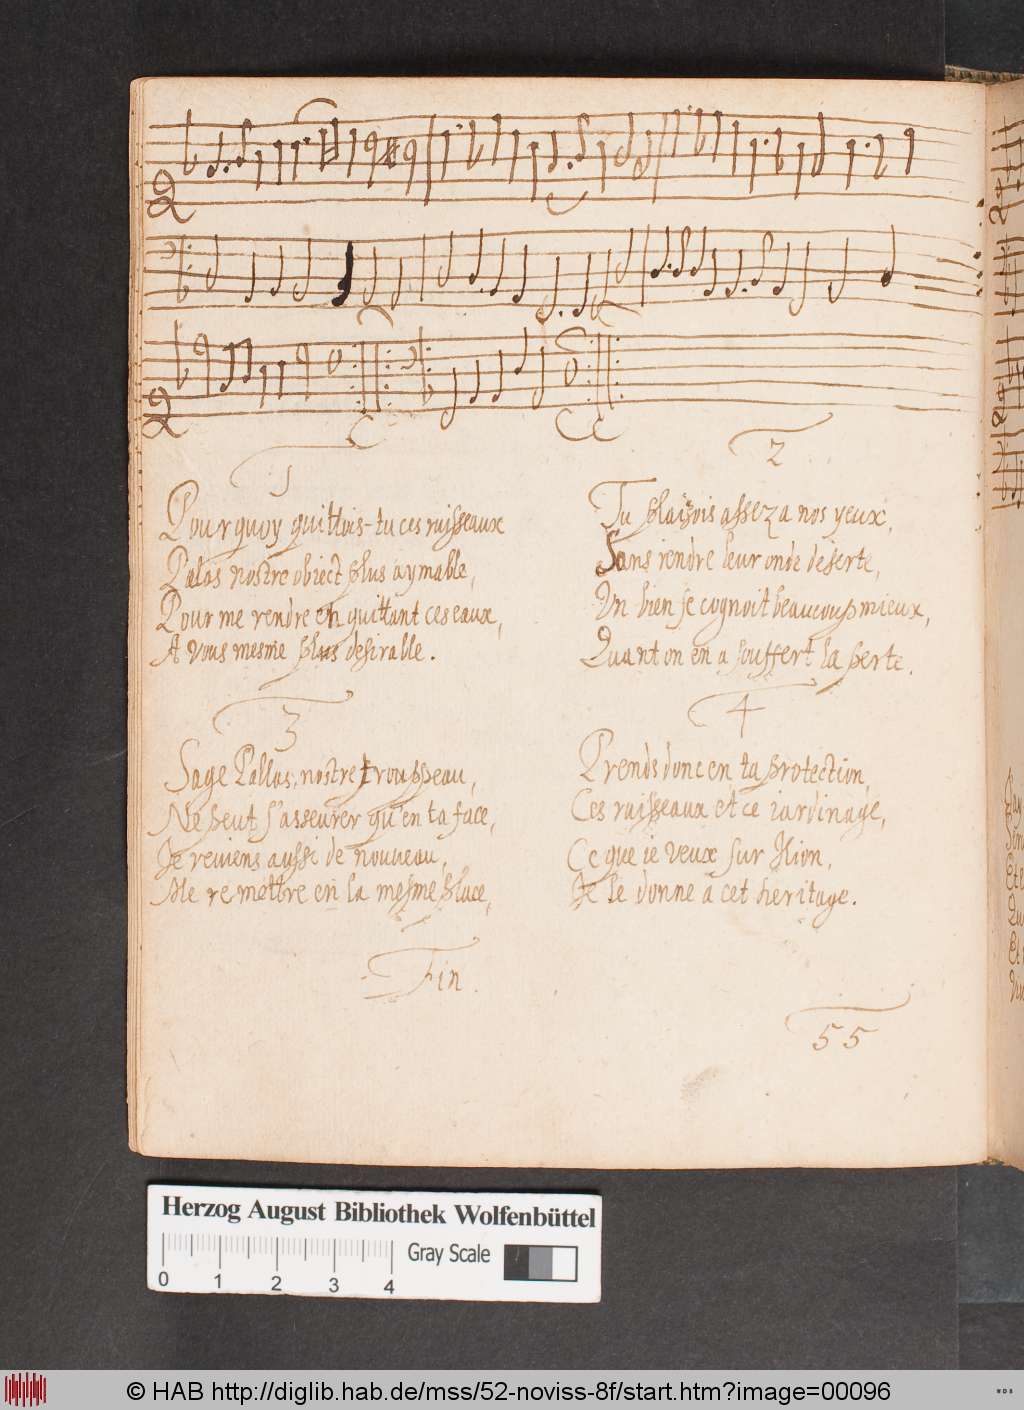 1
Pourquoy quittois-tu ces ruisseaux
Palas nostre obiect plus aymable,
Pour me rendre en quittant ces eaux,
A vous mesme plus desirable.
2
Tu plaisois assez a nos yeux,
Sans rendre leur onde deserte,
Un bien se cognoit beaucoup mieux,
Quant on en a souffert la perte.
3
Sage Pallas, nostre trouppeau,
Ne peut s'asseurer qu'en ta face,
Je reviens aussi de nouveau,
Me remettre en la mesme place,
4
Prends donc en ta protection,
Ces ruisseaux et ce iardinage,
Ce que ie veux sur Ilion,
Je le donne a cet heritage.
Fin.
55
Herzog August Bibliothek Wolfenbüttel
Gray Scale
0 1 2 3 4
© HAB http://diglib.hab.de/mss/52-noviss-8f/start.htm?image=00096